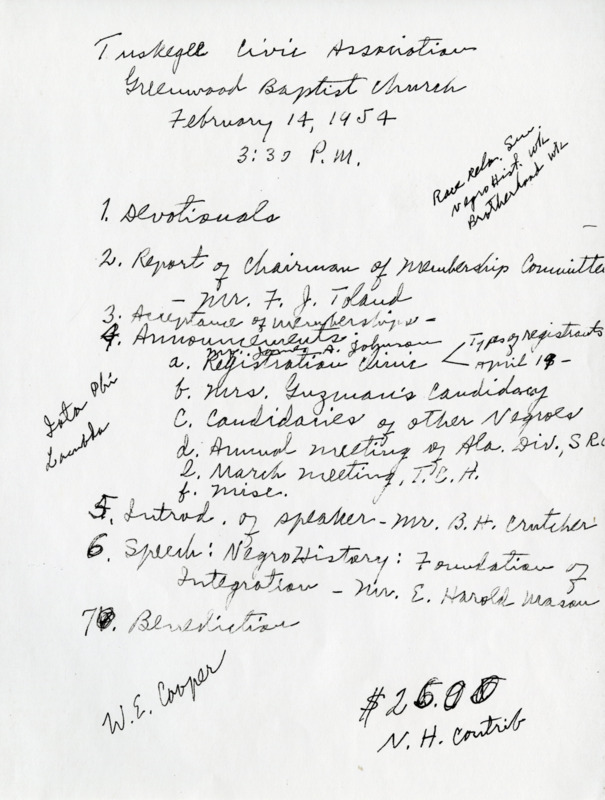 Tuskegee Civic Association
Greenwood Baptist Church
February 14, 1954
3:30 P.M.
Race Reln. Sun.
Negro Hist. Wk
Brotherhood Wk
1. Devotionals
2. Report of Chairman of Membership Committee
- Mr. F. J. Toland
3. Acceptance of memberships -
4. Announcements
Mr. James A. Johnson
a. Registration Clinic < Types of registrants
April 18 -
b. Mrs. Guzman's Candidacy
c. Candidacies of other Negroes
d. Annual meeting of Ala. Div., SRC
e. March meeting, T.C.H.
f. Misc.
Iota Phi
Lambda
5. Introd. of speaker - Mr. B. H. Crutcher
6. Speech: Negro History: Foundation of
Integration - Mr. E. Harold Mason
7. Benediction
W. E. Cooper
N. H. Contrib